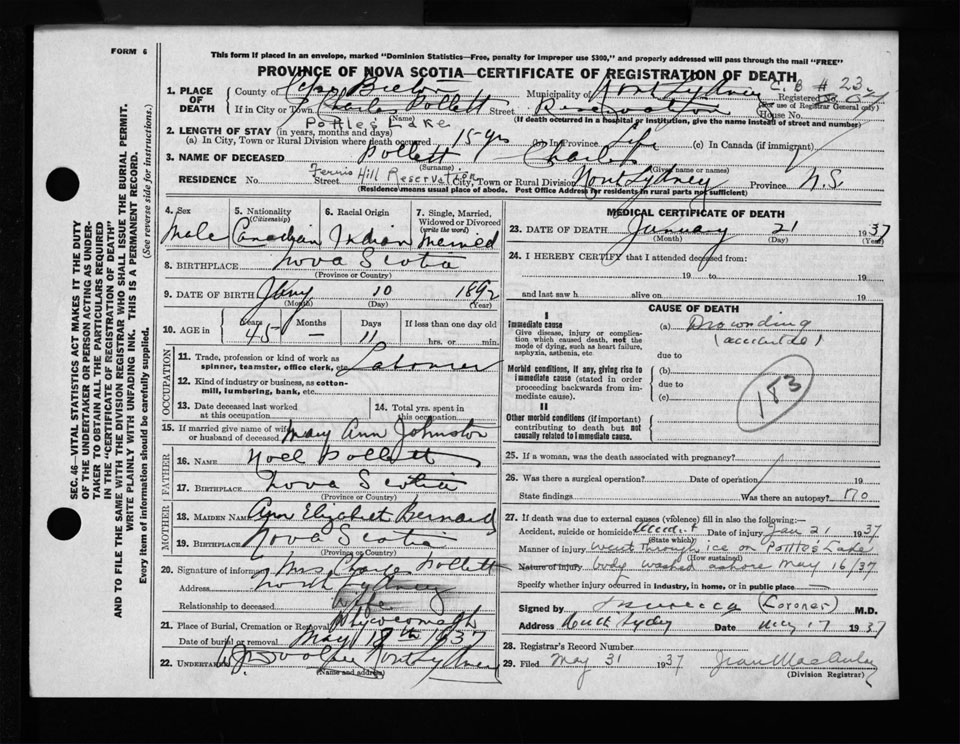 FORM 6
This form if placed in an envelope, marked "Dominion Statistics—Free, penalty for improper use $300," and properly addressed will pass through the mail "FREE"
PROVINCE OF NOVA SCOTIA—CERTIFICATE OF REGISTRATION OF DEATH
SEC. 46—VITAL STATISTICS ACT MAKES IT THE DUTY
OF THE UNDERTAKER OR PERSON ACTING AS UNDER-
TAKER TO OBTAIN ALL THE PARTICULARS REQUIRED
IN THE "CERTIFICATE OF REGISTRATION OF DEATH"
AND TO FILE THE SAME WITH THE DIVISION REGISTRAR WHO SHALL ISSUE THE BURIAL PERMIT.
WRITE PLAINLY WITH UNFADING INK. THIS IS A PERMANENT RECORD.
Every item of information should be carefully supplied. (See reverse side for instructions.)
1. PLACE OF DEATH County of Cape Breton Municipality of North Sydney C. B # 23 Registered No.
(For use of Registrar General only)
If in City or Town Charles Pollett Street Reservation House No.
(Name) (If death occurred in a hospital or institution, give the name instead of street and number)
Pottles Lake
2. LENGTH OF STAY (in years, months and days)
(a) In City, Town or Rural Division where death occurred 15 yrs (b) In Province Life (c) In Canada (if immigrant)
3. NAME OF DECEASED Pollett Charles
(Surname) (Given name or names)
RESIDENCE No. Street Ferris Hill Reservation City, Town or Rural Division North Sydney Province N.S
(Residence means usual place of abode. Post Office Address for residents in rural parts not sufficient)
4. Sex 5. Nationality (Citizenship) 6. Racial Origin 7. Single, Married, Widowed or Divorced (write the word)
Male Canadian Indian Married
8. BIRTHPLACE Nova Scotia
(Province or Country)
9. DATE OF BIRTH Jany 10 1892
(Month) (Day) (Year)
10. AGE in Years Months Days If less than one day old
45 — 11 hrs. or min.
OCCUPATION
11. Trade, profession or kind of work as spinner, teamster, office clerk, etc. Laborer
12. Kind of industry or business, as cotton-mill, lumbering, bank, etc.
13. Date deceased last worked at this occupation
14. Total yrs. spent in this occupation
15. If married give name of wife or husband of deceased Mary Ann Johnston
FATHER
16. NAME Noel Pollett
17. BIRTHPLACE Nova Scotia
(Province or Country)
MOTHER
18. MAIDEN NAME Ann Elizabet Bernard
19. BIRTHPLACE Nova Scotia
(Province or Country)
20. Signature of informant Mrs Charles Pollett
Address North Sydney
Relationship to deceased wife
21. Place of Burial, Cremation or Removal
Date of burial or removal May 18th 1937
22. UNDERTAKER North Sydney
(Name and address)
MEDICAL CERTIFICATE OF DEATH
23. DATE OF DEATH January 21 1937
(Month) (Day) (Year)
24. I HEREBY CERTIFY that I attended deceased from:
19 to 19
and last saw h alive on 19
CAUSE OF DEATH
I
Immediate cause
Give disease, injury or complication which caused death, not the mode of dying, such as heart failure, asphyxia, asthenia, etc
(a) Drownding
due to
Morbid conditions, if any, giving rise to immediate cause (stated in order proceeding backwards from immediate cause)
(b)
due to
(c)
183
II
Other morbid conditions (if important) contributing to death but not causally related to immediate cause.
25. If a woman, was the death associated with pregnancy?
26. Was there a surgical operation? Date of operation 19
State findings Was there an autopsy? no
27. If death was due to external causes (violence) fill in also the following:—
Accident, suicide or homicide Accident Date of injury Jan 21 1937
(State which)
Manner of injury went through ice on Pottles Lake
(How sustained)
Nature of injury body washed ashore May 16/37
Specify whether injury occurred in industry, in home, or in public place
Signed by (Coroner) M.D.
Address North Sydney Date May 17 1937
28. Registrar's Record Number
29. Filed May 31 1937 Jean MacAulay
(Division Registrar)